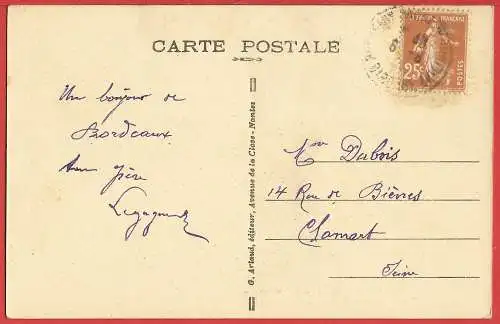 CARTE POSTALE
Un bonjour de
Bordeaux
G. Artaud, éditeur, Avenue de la Close - Nantes
RÉPUBLIQUE FRANÇAISE
25c
POSTES
Mme Dubois
14 Rue de Bièvres
Clamart
Seine